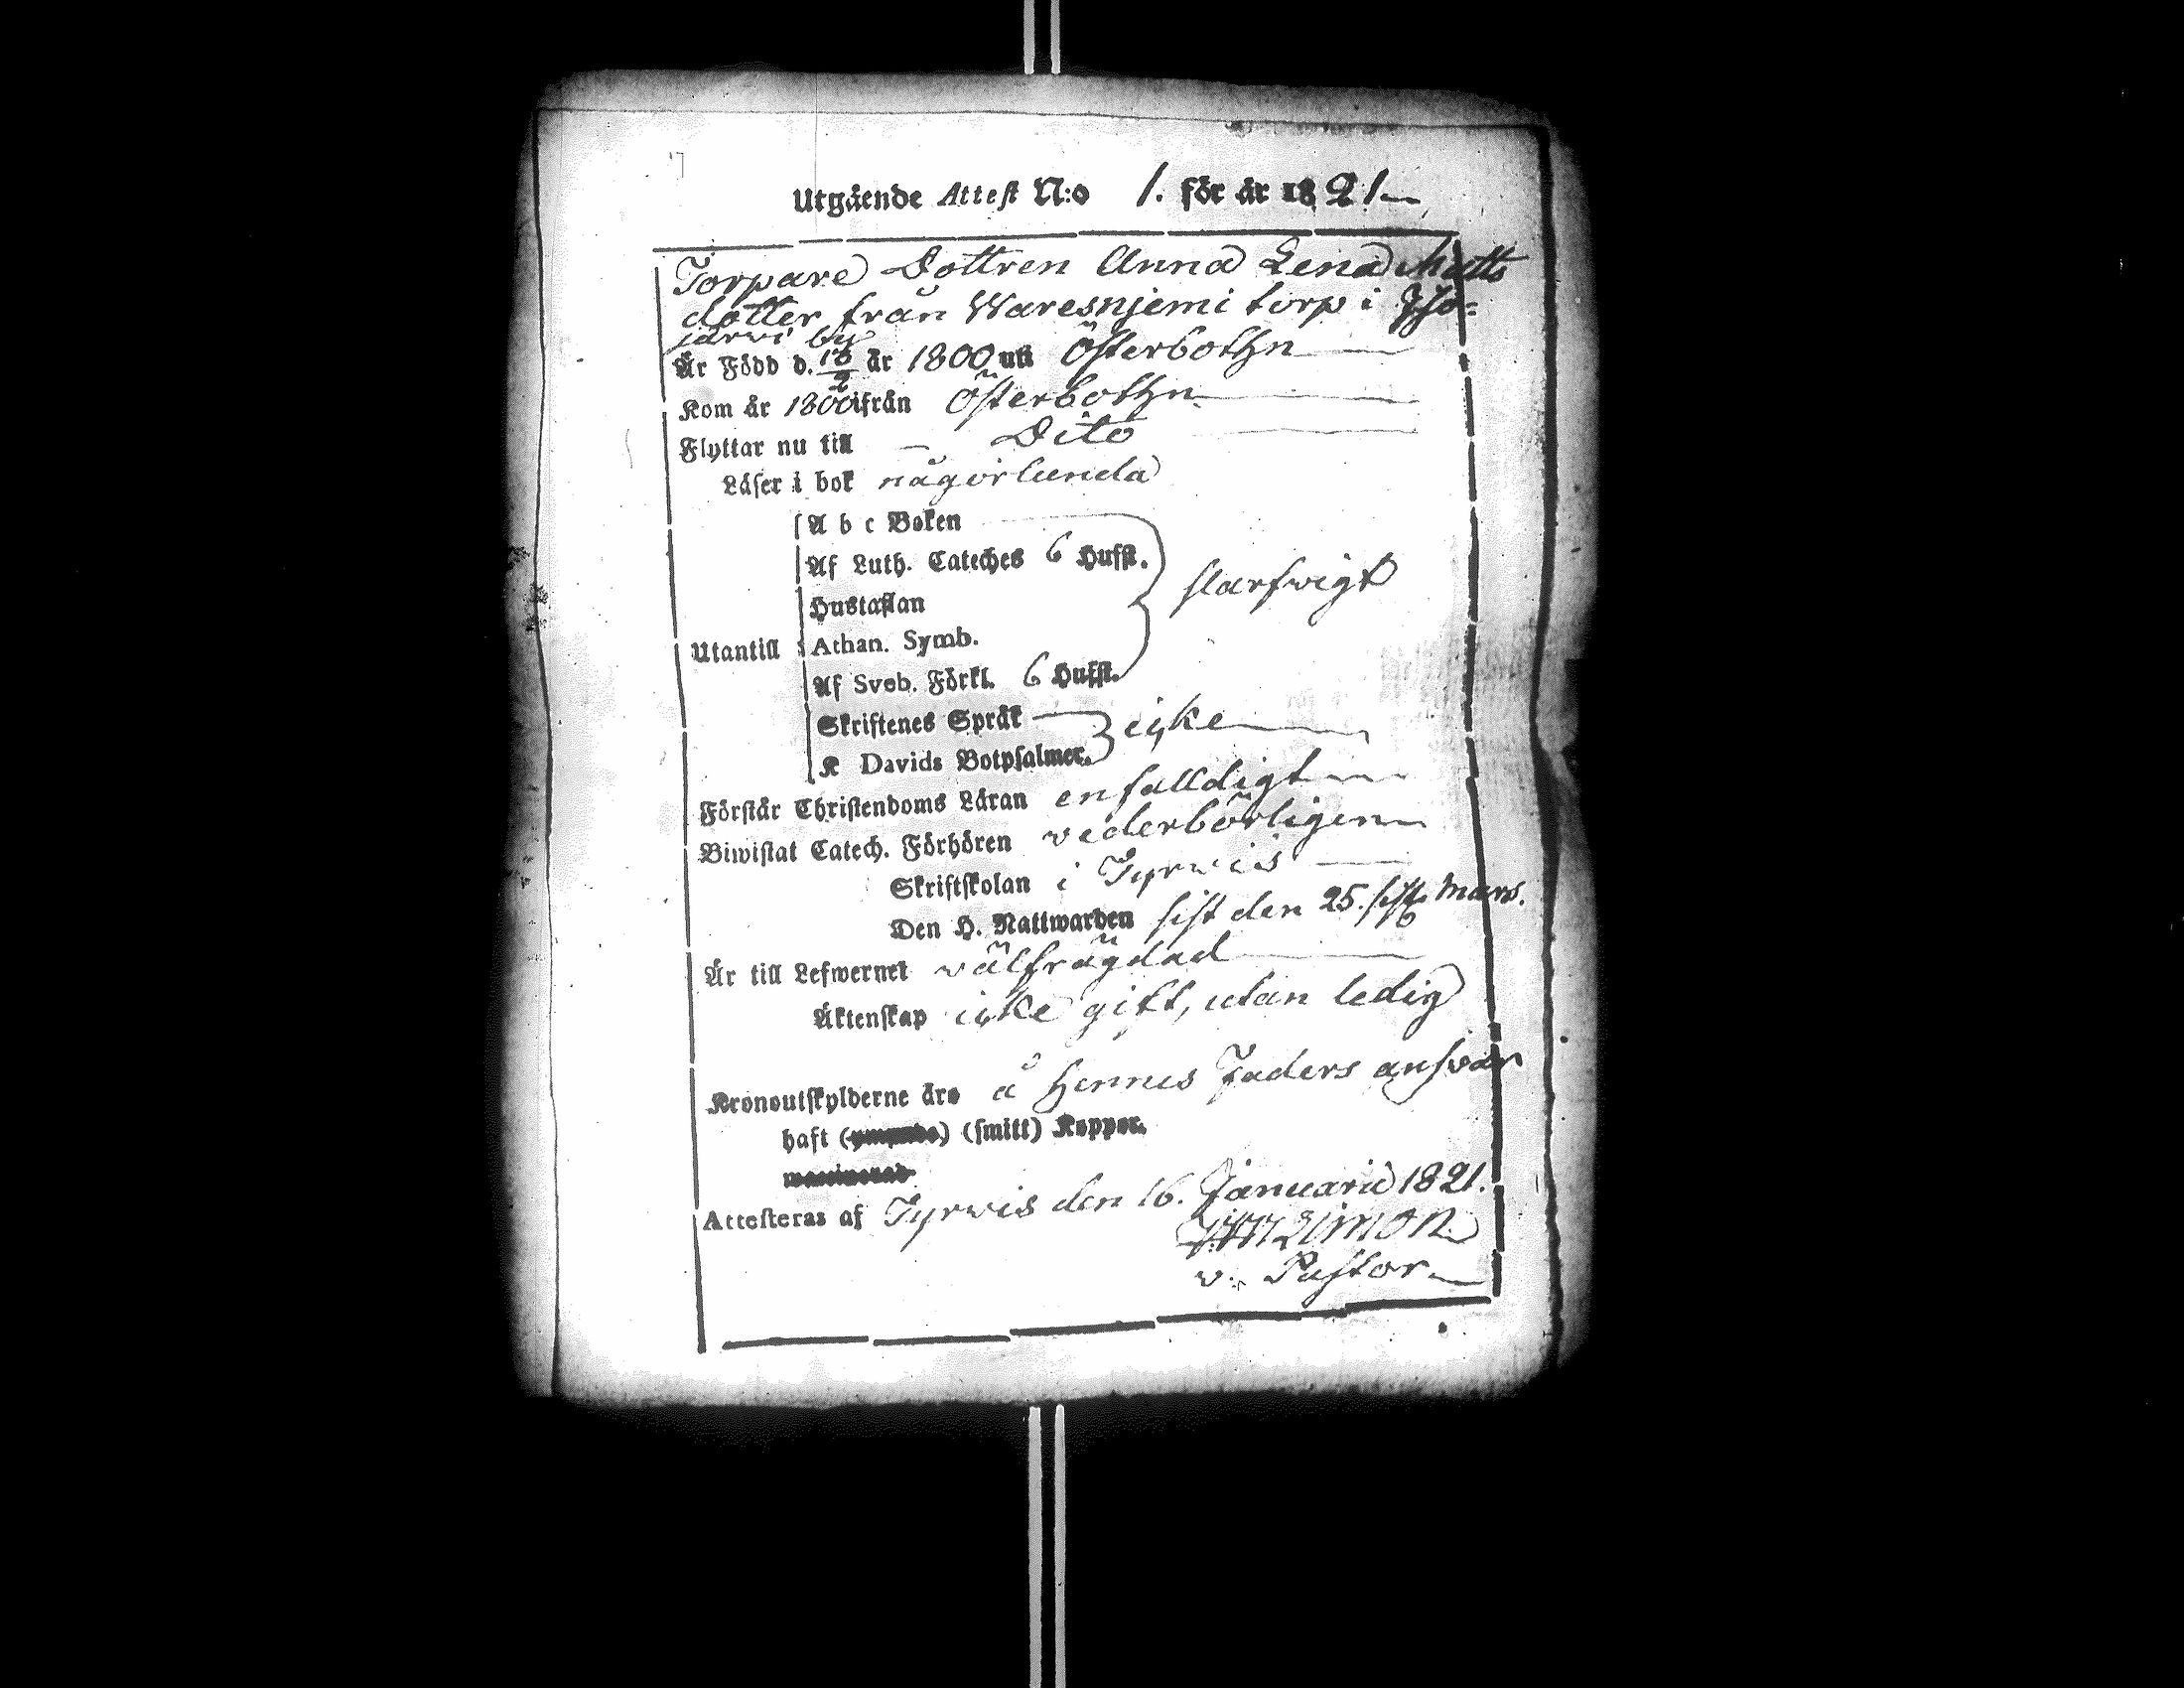 Utgående Attest N:o 1. för år 1821
Torpare Dottren Anna Lena Matts
dotter från Waresnjemi torp i
järwi by
Är Född d. 18/2 år 1800 uti Österbothn
Kom år 1800 ifrån Österbothn
Flyttar nu till Dito
Läser i bok någorlunda
A b c Boken
Af Luth. Cateches 6 Hufst.
slarfwigt
Hustaflan
Utantill Athan. Symb.
Af Sveb. Förkl. 6 Hufst.
Skriftenes Språk
icke
K Davids Botpsalmer.
Förstår Christendoms Läran enfalldigt
Biwistat Catech. Förhören wederbörligen
Skriftskolan i Tyrwis
Den H. Nattwarden sist den 25. Mars.
Är till Lefwernet wälfrägdad
Äktenskap icke gift, utan ledig
Kronoutskylderne äro å Hennes Faders answar
haft (ympade) (smitt) Koppor.
waccinerad
Attesteras af Tyrwis den 16. Januarii 1821.
Limon
v. Pastor